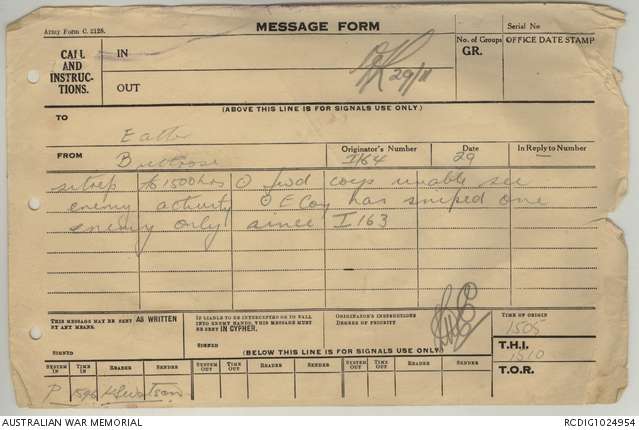 Army Form C. 2128.
MESSAGE FORM
Serial No
CALL AND INSTRUCTIONS.
IN
OUT
29/11
No. of Groups
GR.
OFFICE DATE STAMP
(ABOVE THIS LINE IS FOR SIGNALS USE ONLY.)
TO
Eather
FROM
Buttrose
Originator's Number
I164
Date
29
In Reply to Number
sitrep to 1500 hrs O fwd coys unable see
enemy activity O E Coy has sniped one
enemy only since I 163
THIS MESSAGE MAY BE SENT AS WRITTEN BY ANY MEANS.
SIGNED
IF LIABLE TO BE INTERCEPTED OR TO FALL INTO ENEMY HANDS, THIS MESSAGE MUST BE SENT IN CYPHER.
SIGNED
ORIGINATOR'S INSTRUCTIONS
DEGREE OF PRIORITY
TIME OF ORIGIN
1505
T.H.I.
1510
T.O.R.
(BELOW THIS LINE IS FOR SIGNALS USE ONLY.)
SYSTEM IN
TIME IN
READER
SENDER
SYSTEM OUT
TIME OUT
READER
SENDER
SYSTEM OUT
TIME OUT
READER
SENDER
P
AUSTRALIAN WAR MEMORIAL
RCDIG1024954